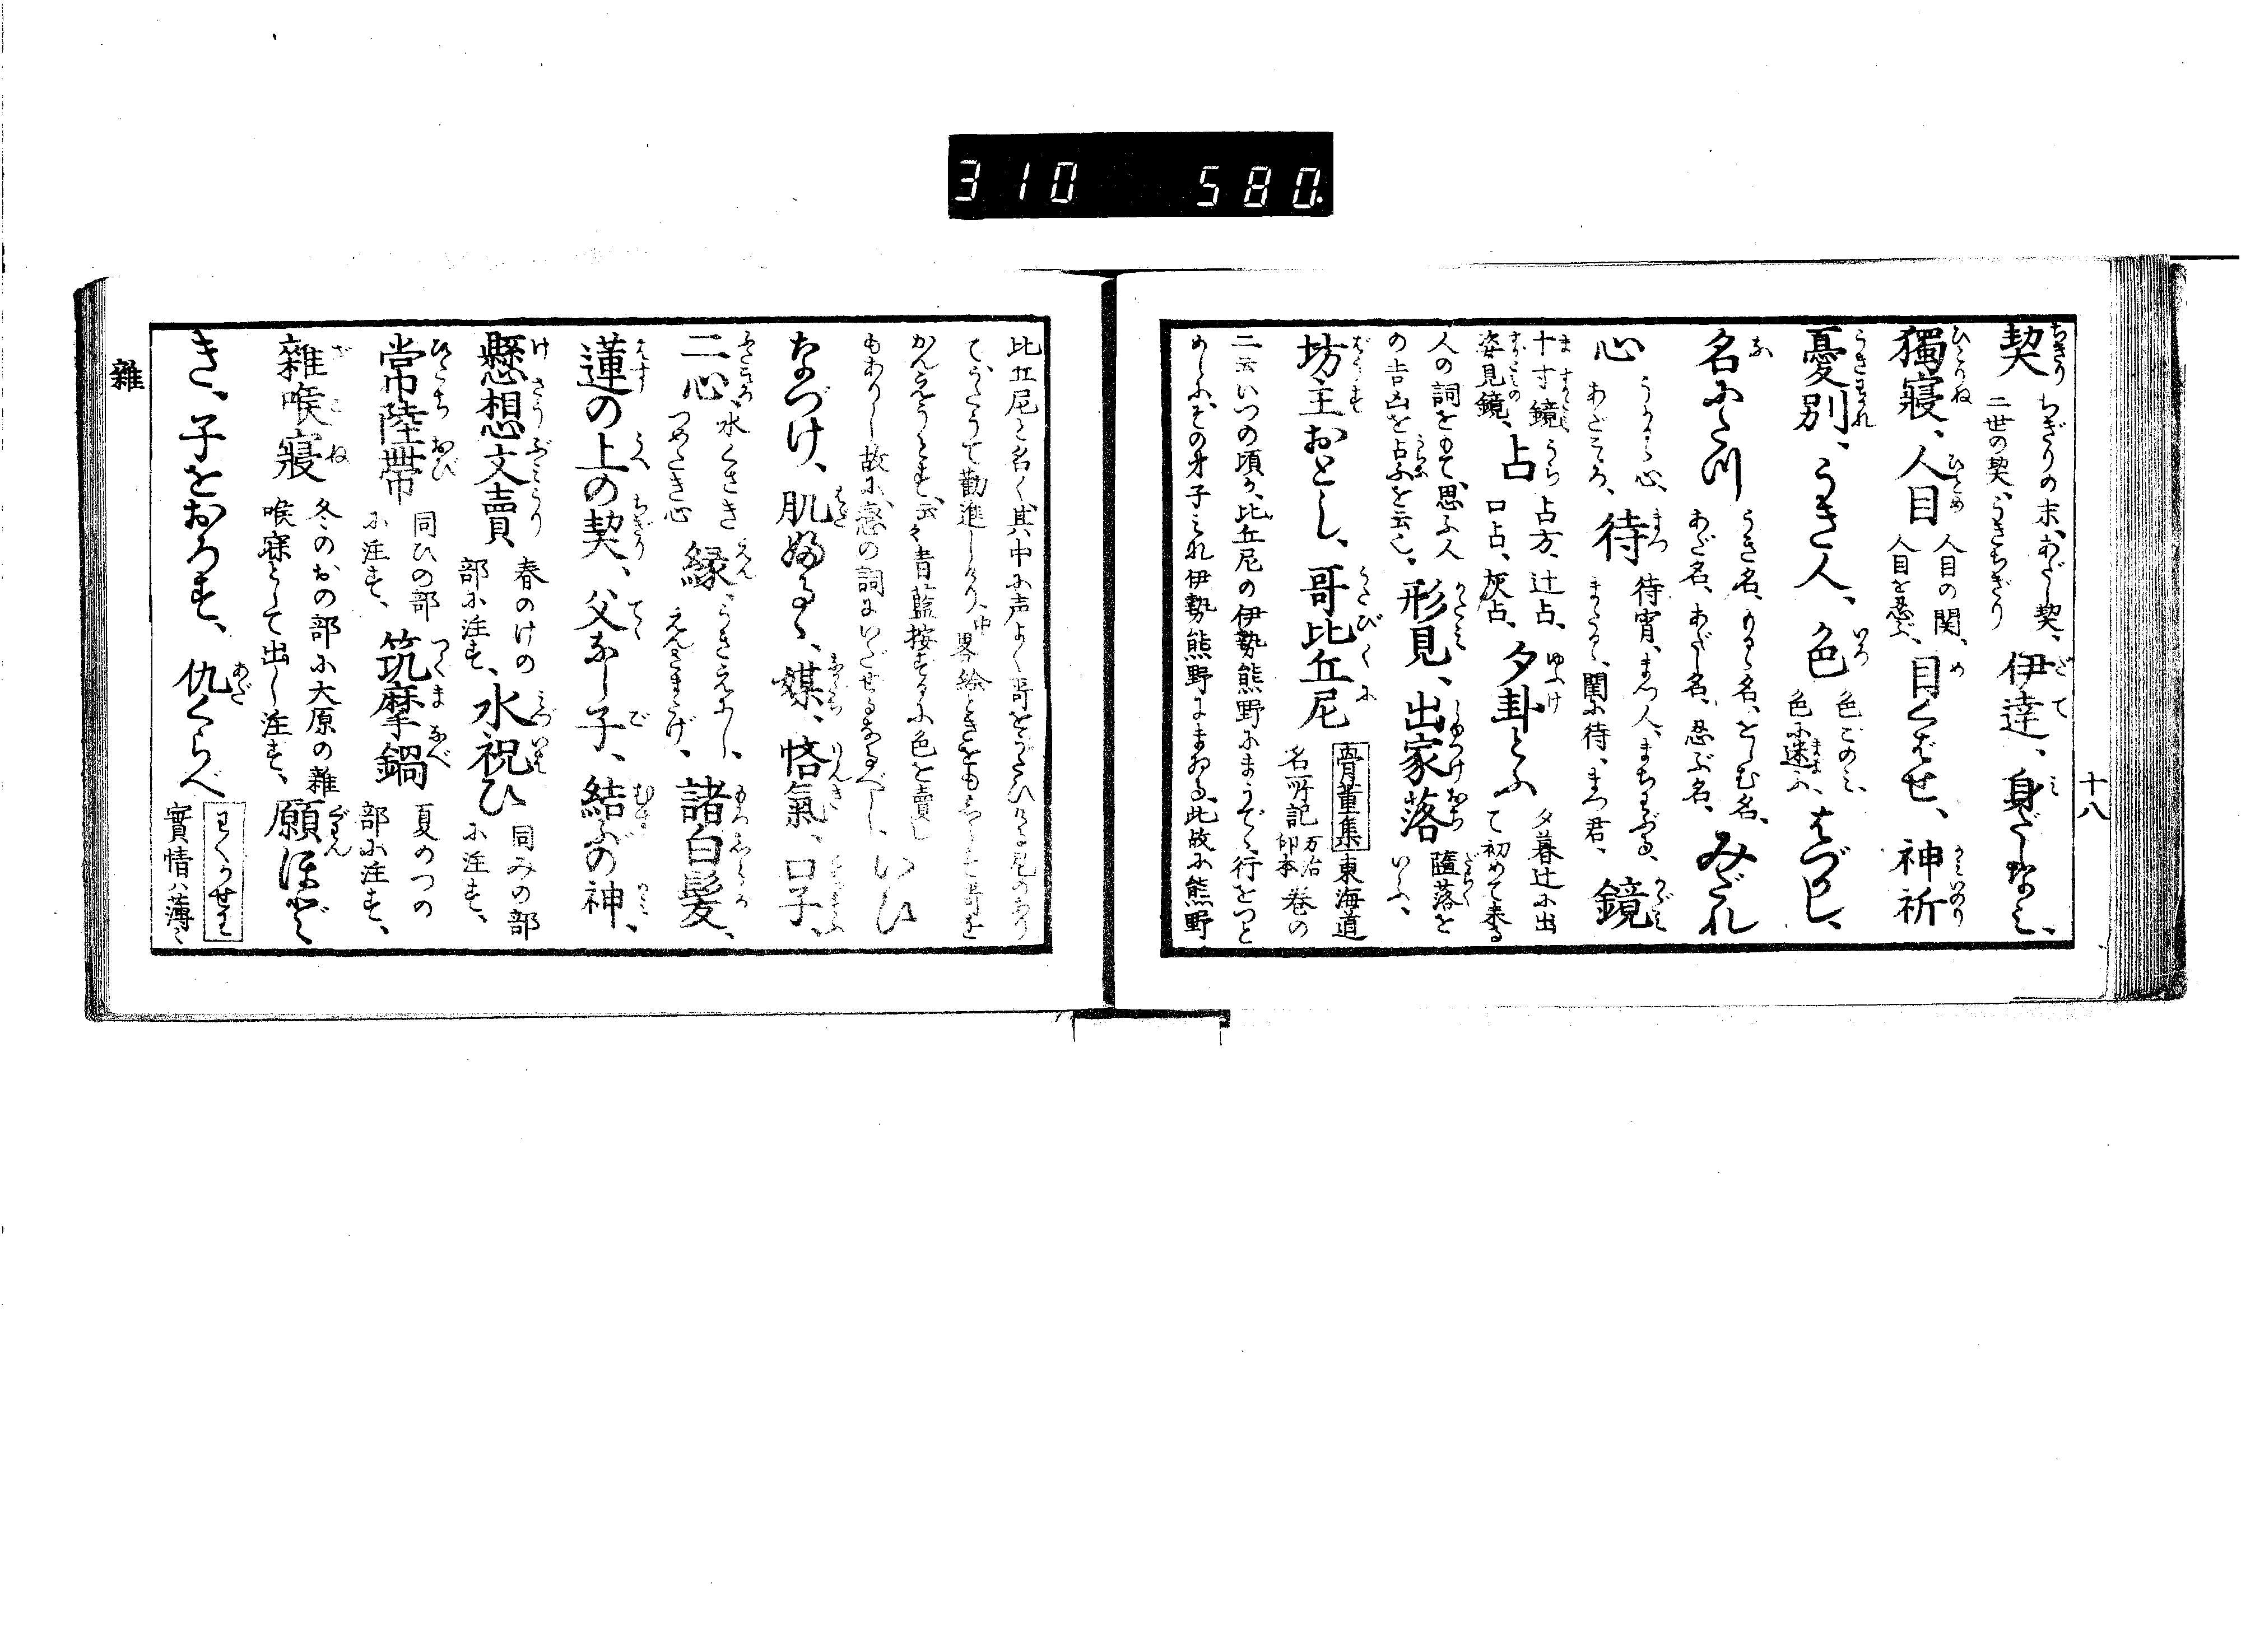 310 580.
十八
契 ちぎりの末、あだし契、二世の契、うきちぎり 伊達、身だしなみ、
獨寝、人目 人目の関、人目を忍ぶ、目くばせ、神祈
憂別、うき人、色 色ごのみ、色に迷ふ、はづかし、
名にたつ うき名、もるゝ名、をしむ名、あだ名、あだし名、忍ぶ名、みだれ
心 うかるゝ心、あだごころ、待 待宵、まつ人、まちわぶる、またるゝ、閨に待、まつ君、鏡
十寸鏡、姿見鏡、占 うら 占方、辻占、口占、灰占、夕卦とふ 夕暮辻に出て初めて来る
人の詞をもて、思ふ人の吉凶を占ふを云也、形見、出家落 堕落をいふ、
坊主おとし、哥比丘尼 骨董集 東海道名所記 万治印本 巻の
二云いつの頃か、比丘尼の伊勢熊野にまうでゝ、行をつと
めしに、その弟子みな伊勢熊野にまゐる、此故に熊野
比丘尼と名く、其中に声よく哥をうたひける尼のあり
て、うたうて勧進しけり、中畧 絵ときをもしらず哥を
かんえうとす、云々 青藍按するに色を賣し
もありし故に、恋の詞にいだせるなるべし、いひ
なづけ、肌ふるゝ、媒、悋氣、口子、
二心、水くさき つめたき心 縁 うきえにし、えんさまたげ、諸白髪、
蓮の上の契、父なし子、結ぶの神、
懸想文賣、春のけの部に注す、水祝ひ 同みの部に注す、
常陸帯 同ひの部に注す、筑摩鍋 夏のつの部に注す、
雜喉寝 冬のおの部に大原の雜喉寐として出し注す、願ほど
き、子をおろす、仇くらべ わくかせわ 實情ハ薄く
雜